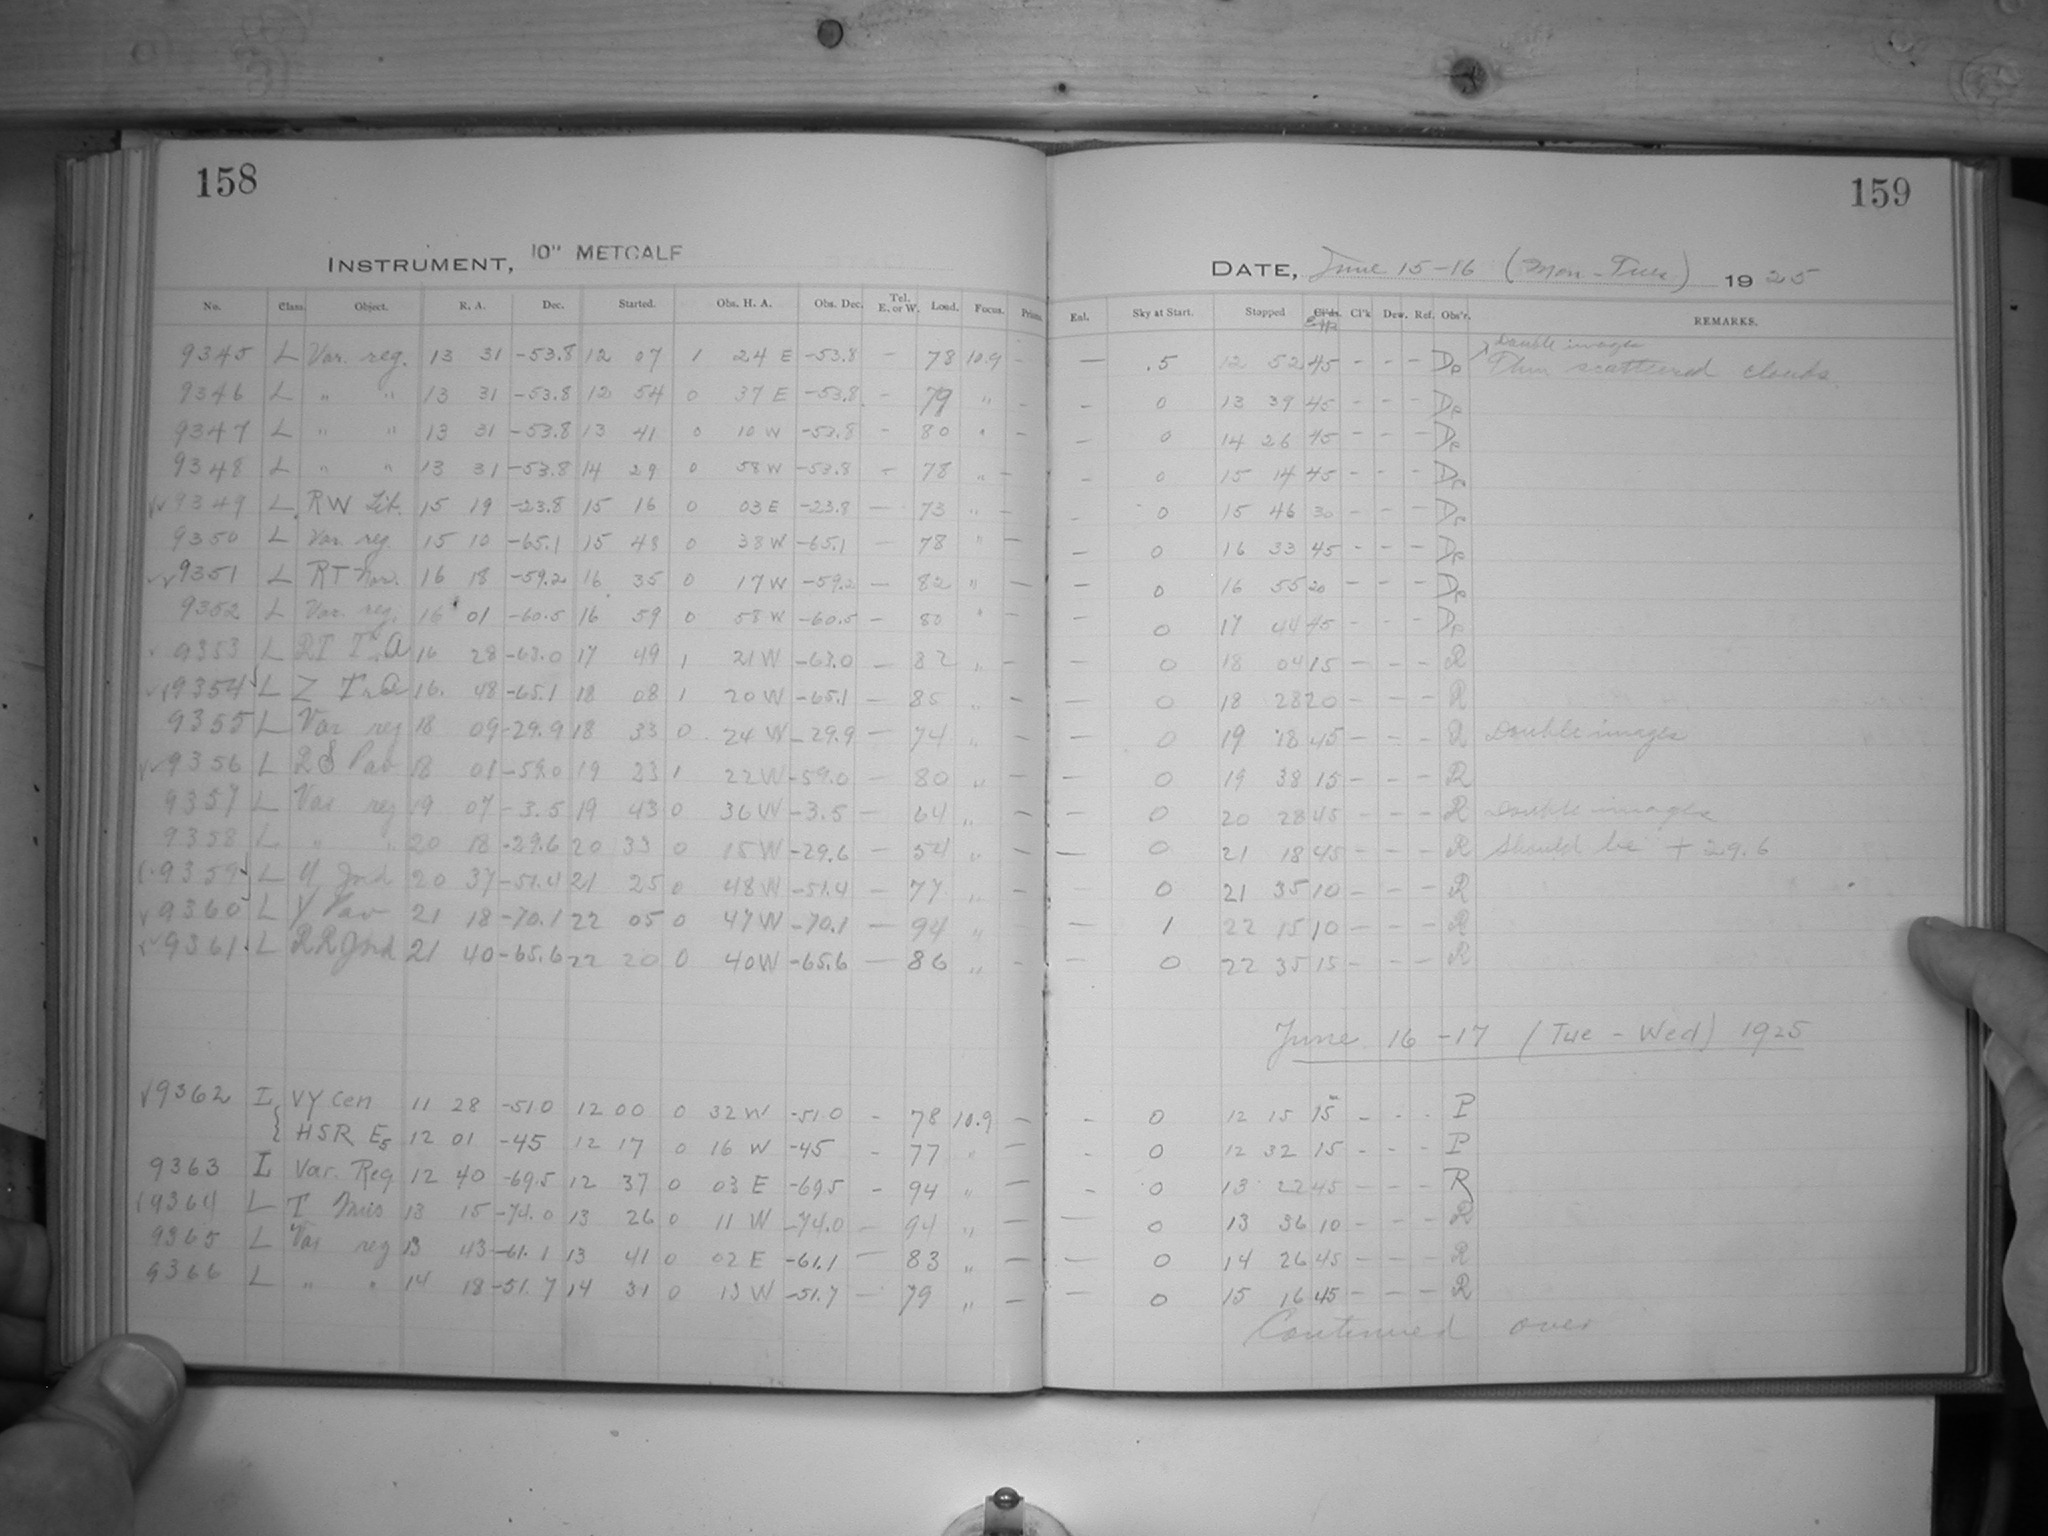 158
159
INSTRUMENT, 10" METCALF
DATE, June 15-16 (Mon-Tues) 1925
No. Class. Object. R. A. Dec. Started. Obs. H. A. Obs. Dec. Tel. E. or W. Load. Focus. Prism. Enl. Sky at Start. Stopped Cl'ds. Exp Cl'k Dew. Ref. Obs'r. REMARKS.
Double images
9345 L Var. reg. 13 31 -53.8 12 07 1 24 E -53.8 - 78 10.9 - - .5 12 52 45 - - - De Thin scattered clouds.
9346 L " " 13 31 -53.8 12 54 0 37 E -53.8 - 79 " - - 0 13 39 45 - - - De
9347 L " " 13 31 -53.8 13 41 0 10 W -53.8 - 80 " - - 0 14 26 45 - - - De
9348 L " " 13 31 -53.8 14 29 0 58 W -53.8 - 78 " - - 0 15 14 45 - - - De
9349 L RW Lib. 15 19 -23.8 15 16 0 03 E -23.8 - 73 " - - 0 15 46 30 - - - De
9350 L Var. reg. 15 10 -65.1 15 48 0 38 W -65.1 - 78 " - - 0 16 33 45 - - - De
9351 L RT Nor. 16 18 -59.2 16 35 0 17 W -59.2 - 82 " - - 0 16 55 20 - - - De
9352 L Var. reg. 16 01 -60.5 16 59 0 58 W -60.5 - 80 " - - 0 17 44 45 - - - De
9353 L RT TrA 16 28 -63.0 17 49 1 21 W -63.0 - 82 " - - 0 18 04 15 - - - R
9354 L Z TrA 16 48 -65.1 18 08 1 20 W -65.1 - 85 " - - 0 18 28 20 - - - R
9355 L Var reg 18 09 -29.9 18 33 0 24 W -29.9 - 74 " - - 0 19 18 45 - - - R Double images
9356 L RS Pav 18 01 -59.0 19 23 1 22 W -59.0 - 80 " - - 0 19 38 15 - - - R
9357 L Var reg 19 07 -3.5 19 43 0 36 W -3.5 - 64 " - - 0 20 28 45 - - - R Double images
9358 L " " 20 18 -29.6 20 33 0 15 W -29.6 - 54 " - - 0 21 18 45 - - - R Should be + 29.6
9359 L U Ind 20 37 -51.4 21 25 0 48 W -51.4 - 77 " - - 0 21 35 10 - - - R
9360 L Y Pav 21 18 -70.1 22 05 0 47 W -70.1 - 94 " - - 1 22 15 10 - - - R
9361 L RR Ind 21 40 -65.6 22 20 0 40 W -65.6 - 86 " - - 0 22 35 15 - - - R
June 16-17 (Tue - Wed) 1925
9362 I VY Cen 11 28 -51.0 12 00 0 32 W -51.0 - 78 10.9 - - 0 12 15 15 - - - P
HSR E5 12 01 -45 12 17 0 16 W -45 - 77 " - - 0 12 32 15 - - - P
9363 I Var. Reg 12 40 -69.5 12 37 0 03 E -69.5 - 94 " - - 0 13 22 45 - - - R
9364 L T Mus 13 15 -74.0 13 26 0 11 W -74.0 - 94 " - - 0 13 36 10 - - - R
9365 L Var reg 13 43 -61.1 13 41 0 02 E -61.1 - 83 " - - 0 14 26 45 - - - R
9366 L " " 14 18 -51.7 14 31 0 13 W -51.7 - 79 " - - 0 15 16 45 - - - R
Continued over